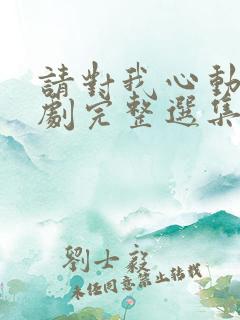 請對我心動
劇完整選集
劉士毅
未任同意禁止轉載